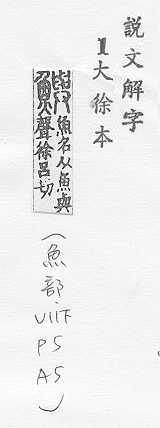 説文解字
1大徐本
鱮 魚名从魚與
聲徐呂切
(魚部·VII下
P5
A5)